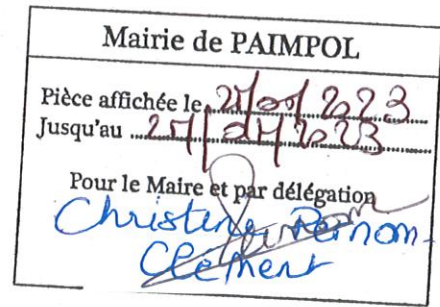 Mairie de PAIMPOL
Pièce affichée le 2023
Jusqu'au 2023
Pour le Maire et par délégation
Christine
Clément